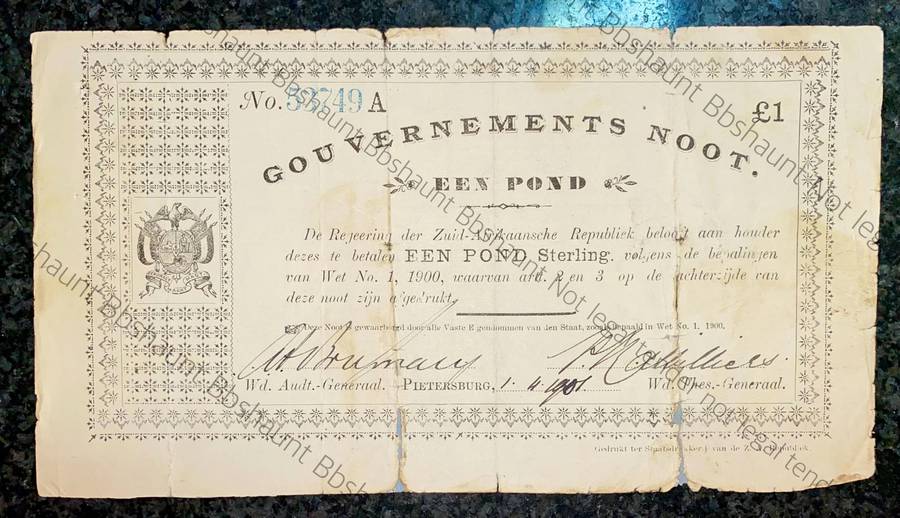 No. 33749 A £1
GOUVERNEMENTS NOOT.
EEN POND
De Regeering der Zuid-Afrikaansche Republiek belooft aan houder
dezes te betalen EEN POND Sterling. volgens de bepalingen
van Wet No. 1, 1900, waarvan artt. 2 en 3 op de achterzijde van
deze noot zijn afgedrukt.
Deze Noot is gewaarborgd door alle Vaste Eigendommen van den Staat, zooals bepaald in Wet No. 1, 1900.
Wd. Audt.-Generaal. PIETERSBURG, 1. 4. 1901. Wd. Thes.-Generaal.
Gedrukt ter Staatsdrukkerij van de Z. A. Republiek.
Bbshaunt Not legal tender